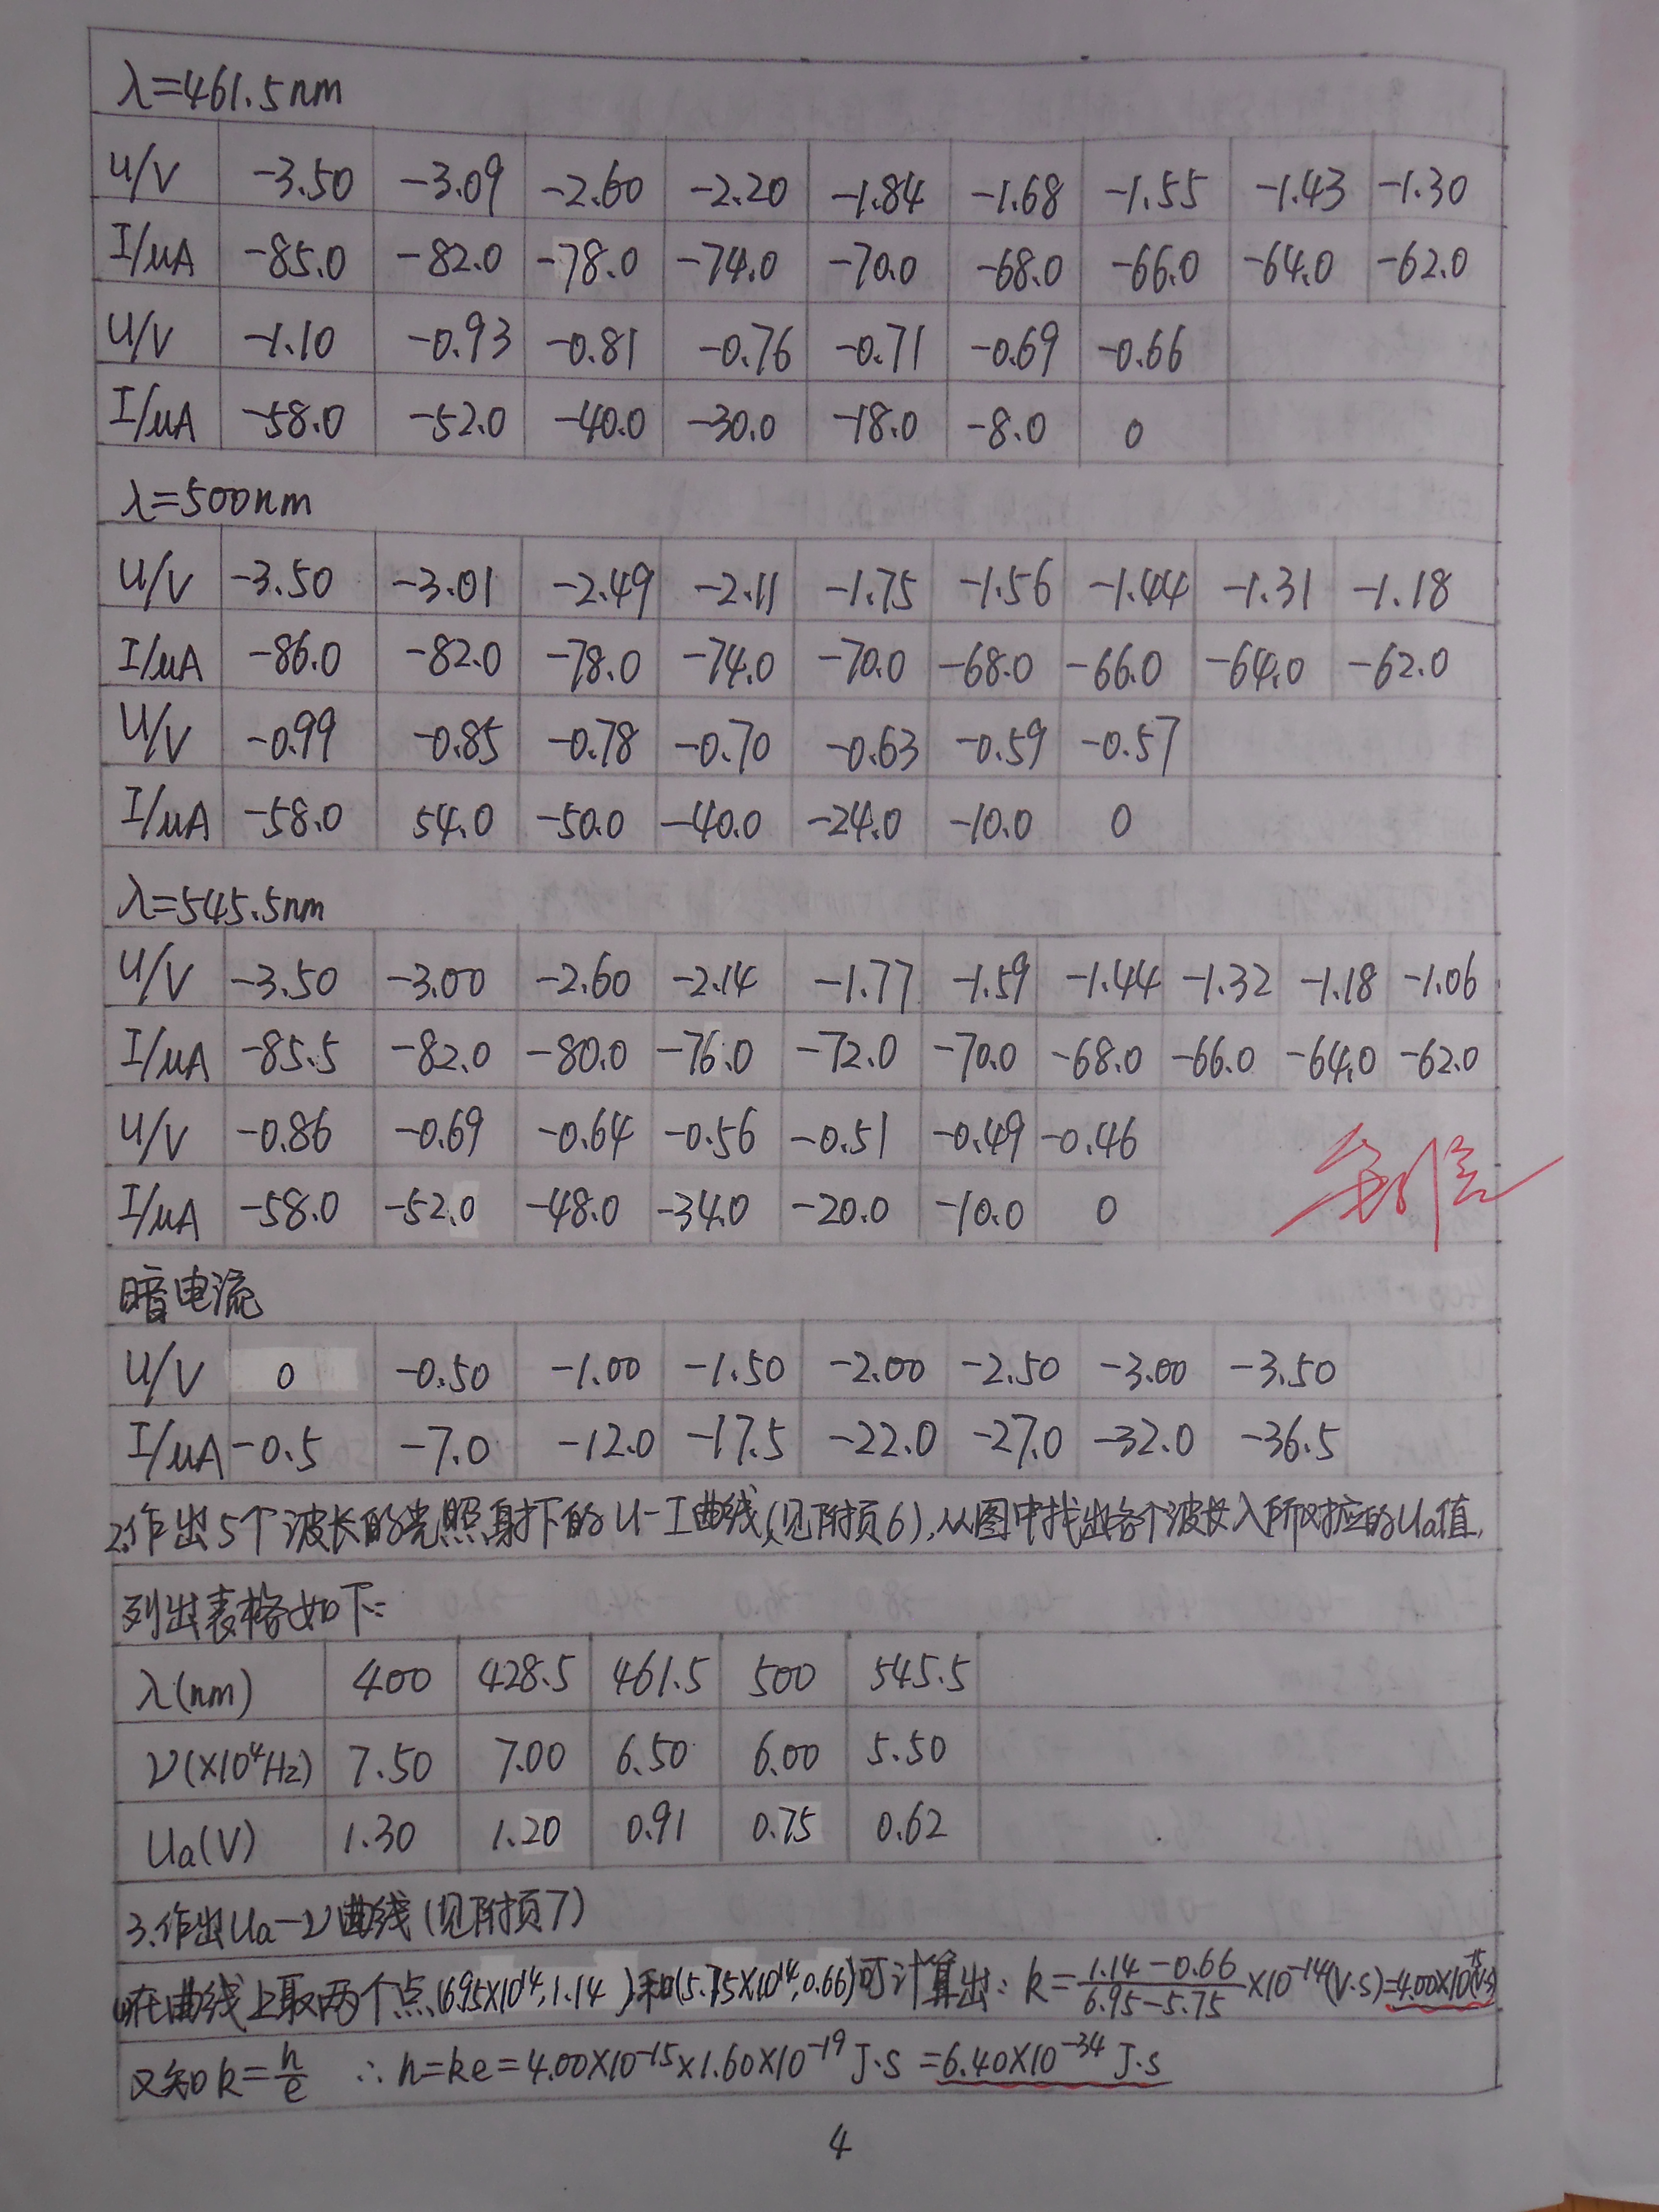 λ=461.5nm
U/V -3.50 -3.09 -2.60 -2.20 -1.84 -1.68 -1.55 -1.43 -1.30
I/μA -85.0 -82.0 -78.0 -74.0 -70.0 -68.0 -66.0 -64.0 -62.0
U/V -1.10 -0.93 -0.81 -0.76 -0.71 -0.69 -0.66
I/μA -58.0 -52.0 -40.0 -30.0 -18.0 -8.0 0
λ=500nm
U/V -3.50 -3.01 -2.49 -2.11 -1.75 -1.56 -1.44 -1.31 -1.18
I/μA -86.0 -82.0 -78.0 -74.0 -70.0 -68.0 -66.0 -64.0 -62.0
U/V -0.99 -0.85 -0.78 -0.70 -0.63 -0.59 -0.57
I/μA -58.0 54.0 -50.0 -40.0 -24.0 -10.0 0
λ=545.5nm
U/V -3.50 -3.00 -2.60 -2.14 -1.77 -1.59 -1.44 -1.32 -1.18 -1.06
I/μA -85.5 -82.0 -80.0 -76.0 -72.0 -70.0 -68.0 -66.0 -64.0 -62.0
U/V -0.86 -0.69 -0.64 -0.56 -0.51 -0.49 -0.46
I/μA -58.0 -52.0 -48.0 -34.0 -20.0 -10.0 0
暗电流
U/V 0 -0.50 -1.00 -1.50 -2.00 -2.50 -3.00 -3.50
I/μA -0.5 -7.0 -12.0 -17.5 -22.0 -27.0 -32.0 -36.5
2.作出5个波长的光照射下的U-I曲线(见附页6),从图中找出各个波长λ所对应的Ua值,
列出表格如下:
λ(nm) 400 428.5 461.5 500 545.5
ν(×10⁴Hz) 7.50 7.00 6.50 6.00 5.50
Ua(V) 1.30 1.20 0.91 0.75 0.62
3.作出Ua-ν曲线(见附页7)
(1)在曲线上取两个点(6.95×10¹⁴,1.14)和(5.75×10¹⁴,0.66)可计算出: k=(1.14-0.66)/(6.95-5.75)×10⁻¹⁴(V·S)=4.00×10⁻¹⁵(V·S)
又知k=h/e ∴h=ke=4.00×10⁻¹⁵×1.60×10⁻¹⁹J·S=6.40×10⁻³⁴J·S
4